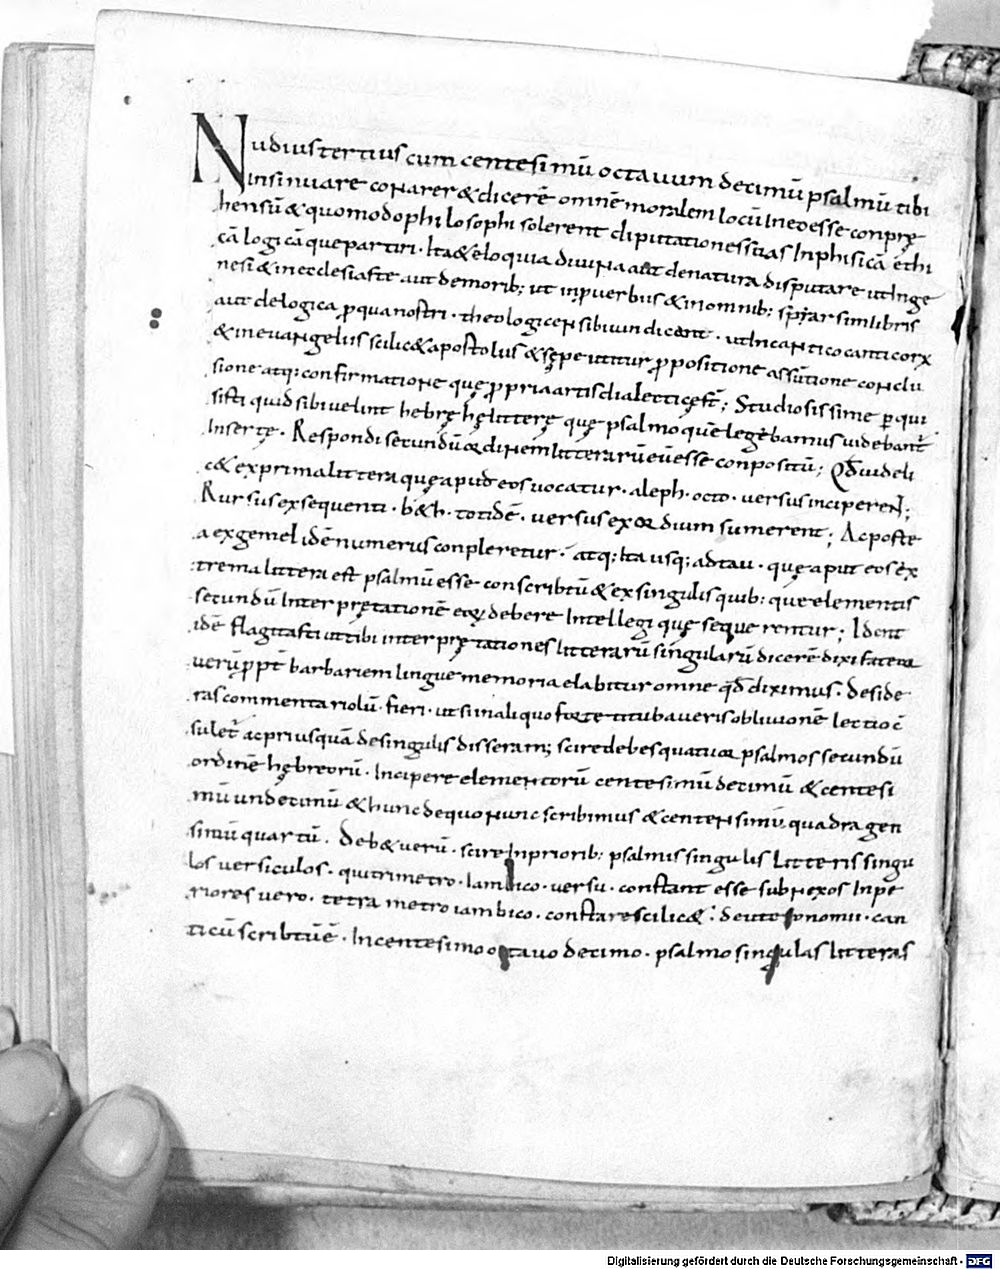 Nudius tertius cum centesimū octavum decimū psalmū tibi
insinuare conarer & dicerē omnē moralem locū In eo esse conprę
hensū & quomodo philosophi solerent diputationes suas In phisicā ethi
cā logicā que partiri · Ita & eloquia divina aut de natura disputare ut In ge
nesi & in ecclesiaste aut de morib; ut in proverbiis & in omnib;
aut de logica pro qua nostri · theologicen sibi vindicant · ut In cantico canticorum
& in evangeliis scilic& apostolus & sępe utitur propositione assūtione conclu
sione atq; confirmatione quę propria artis dialecticę est; Studiosissime perqui
sisti quid sibi velint hebrę hę litterę quę psalmo quē legebamus videbant̄
Insertę · Respondi secundū ordinem litterarū eū esse conpositū; Qđ videli
c& ex prima littera quę apud eos vocatur · aleph · octo · versus inciperent;
Rursus ex sequenti · b&h · totidē · versus exordium sumerent; Ac poste
a ex gemel idē numerus conpleretur · atq; Ita usq; ad tau · quę aput eos ex
trema littera est psalmū esse conscribtū & ex singulis quib: que elementis
secundū Interprętationē eorum debere Intellegi quę sequerentur; Ident
idē flagitasti ut tibi interprętationes litterarū singularū dicerē dixi fateor
verū propt̄ barbariem linguę memoria elabitur omne qđ diximus · deside
ras commentariolū · fieri · ut si in aliquo forte titubaveris oblivionē lectio c̄
sulet̄ ac priusquā de singulis disseram; scire debes quatuor psalmos secundū
ordinē hębreorū · Incipere elementorū centesimū decimū & centesi
mū undecimū & hunc de quo nunc scribimus & centensimū quadragen
simū quartū · Deb& verū · scire In priorib: psalmis singulis Litteris singu
los versiculos · qui trimetro · Iambico · versu · constant esse subnexos In pe
riores vero · tetrametro iambico · constare scilic& · deuteronomii · can
ticū scribtū ē · In centesimo octavo decimo · psalmo singulas litteras
Digitalisierung gefördert durch die Deutsche Forschungsgemeinschaft - DFG